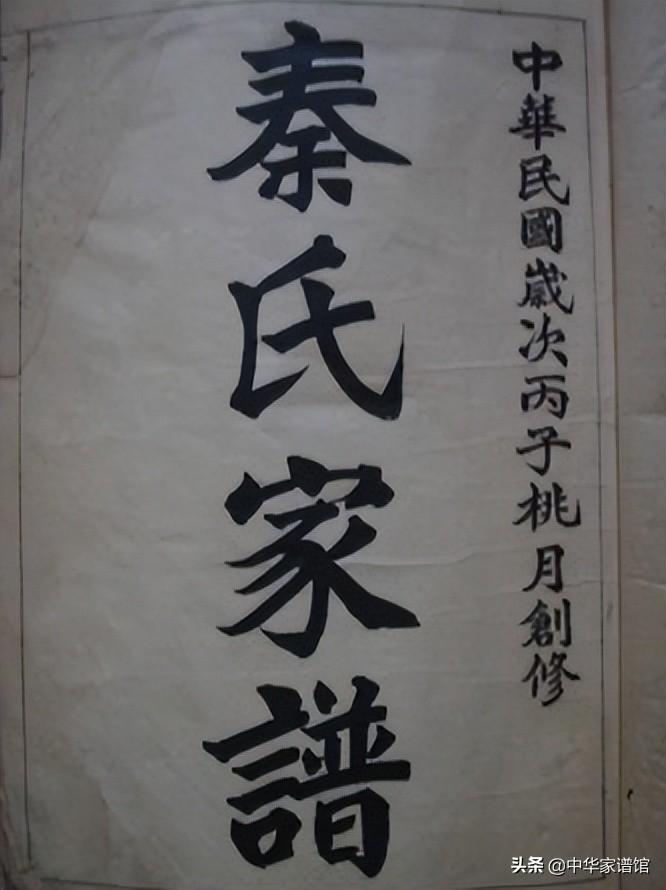 中華民國歲次丙子桃月創修
秦氏家譜
头条 @中华家谱馆